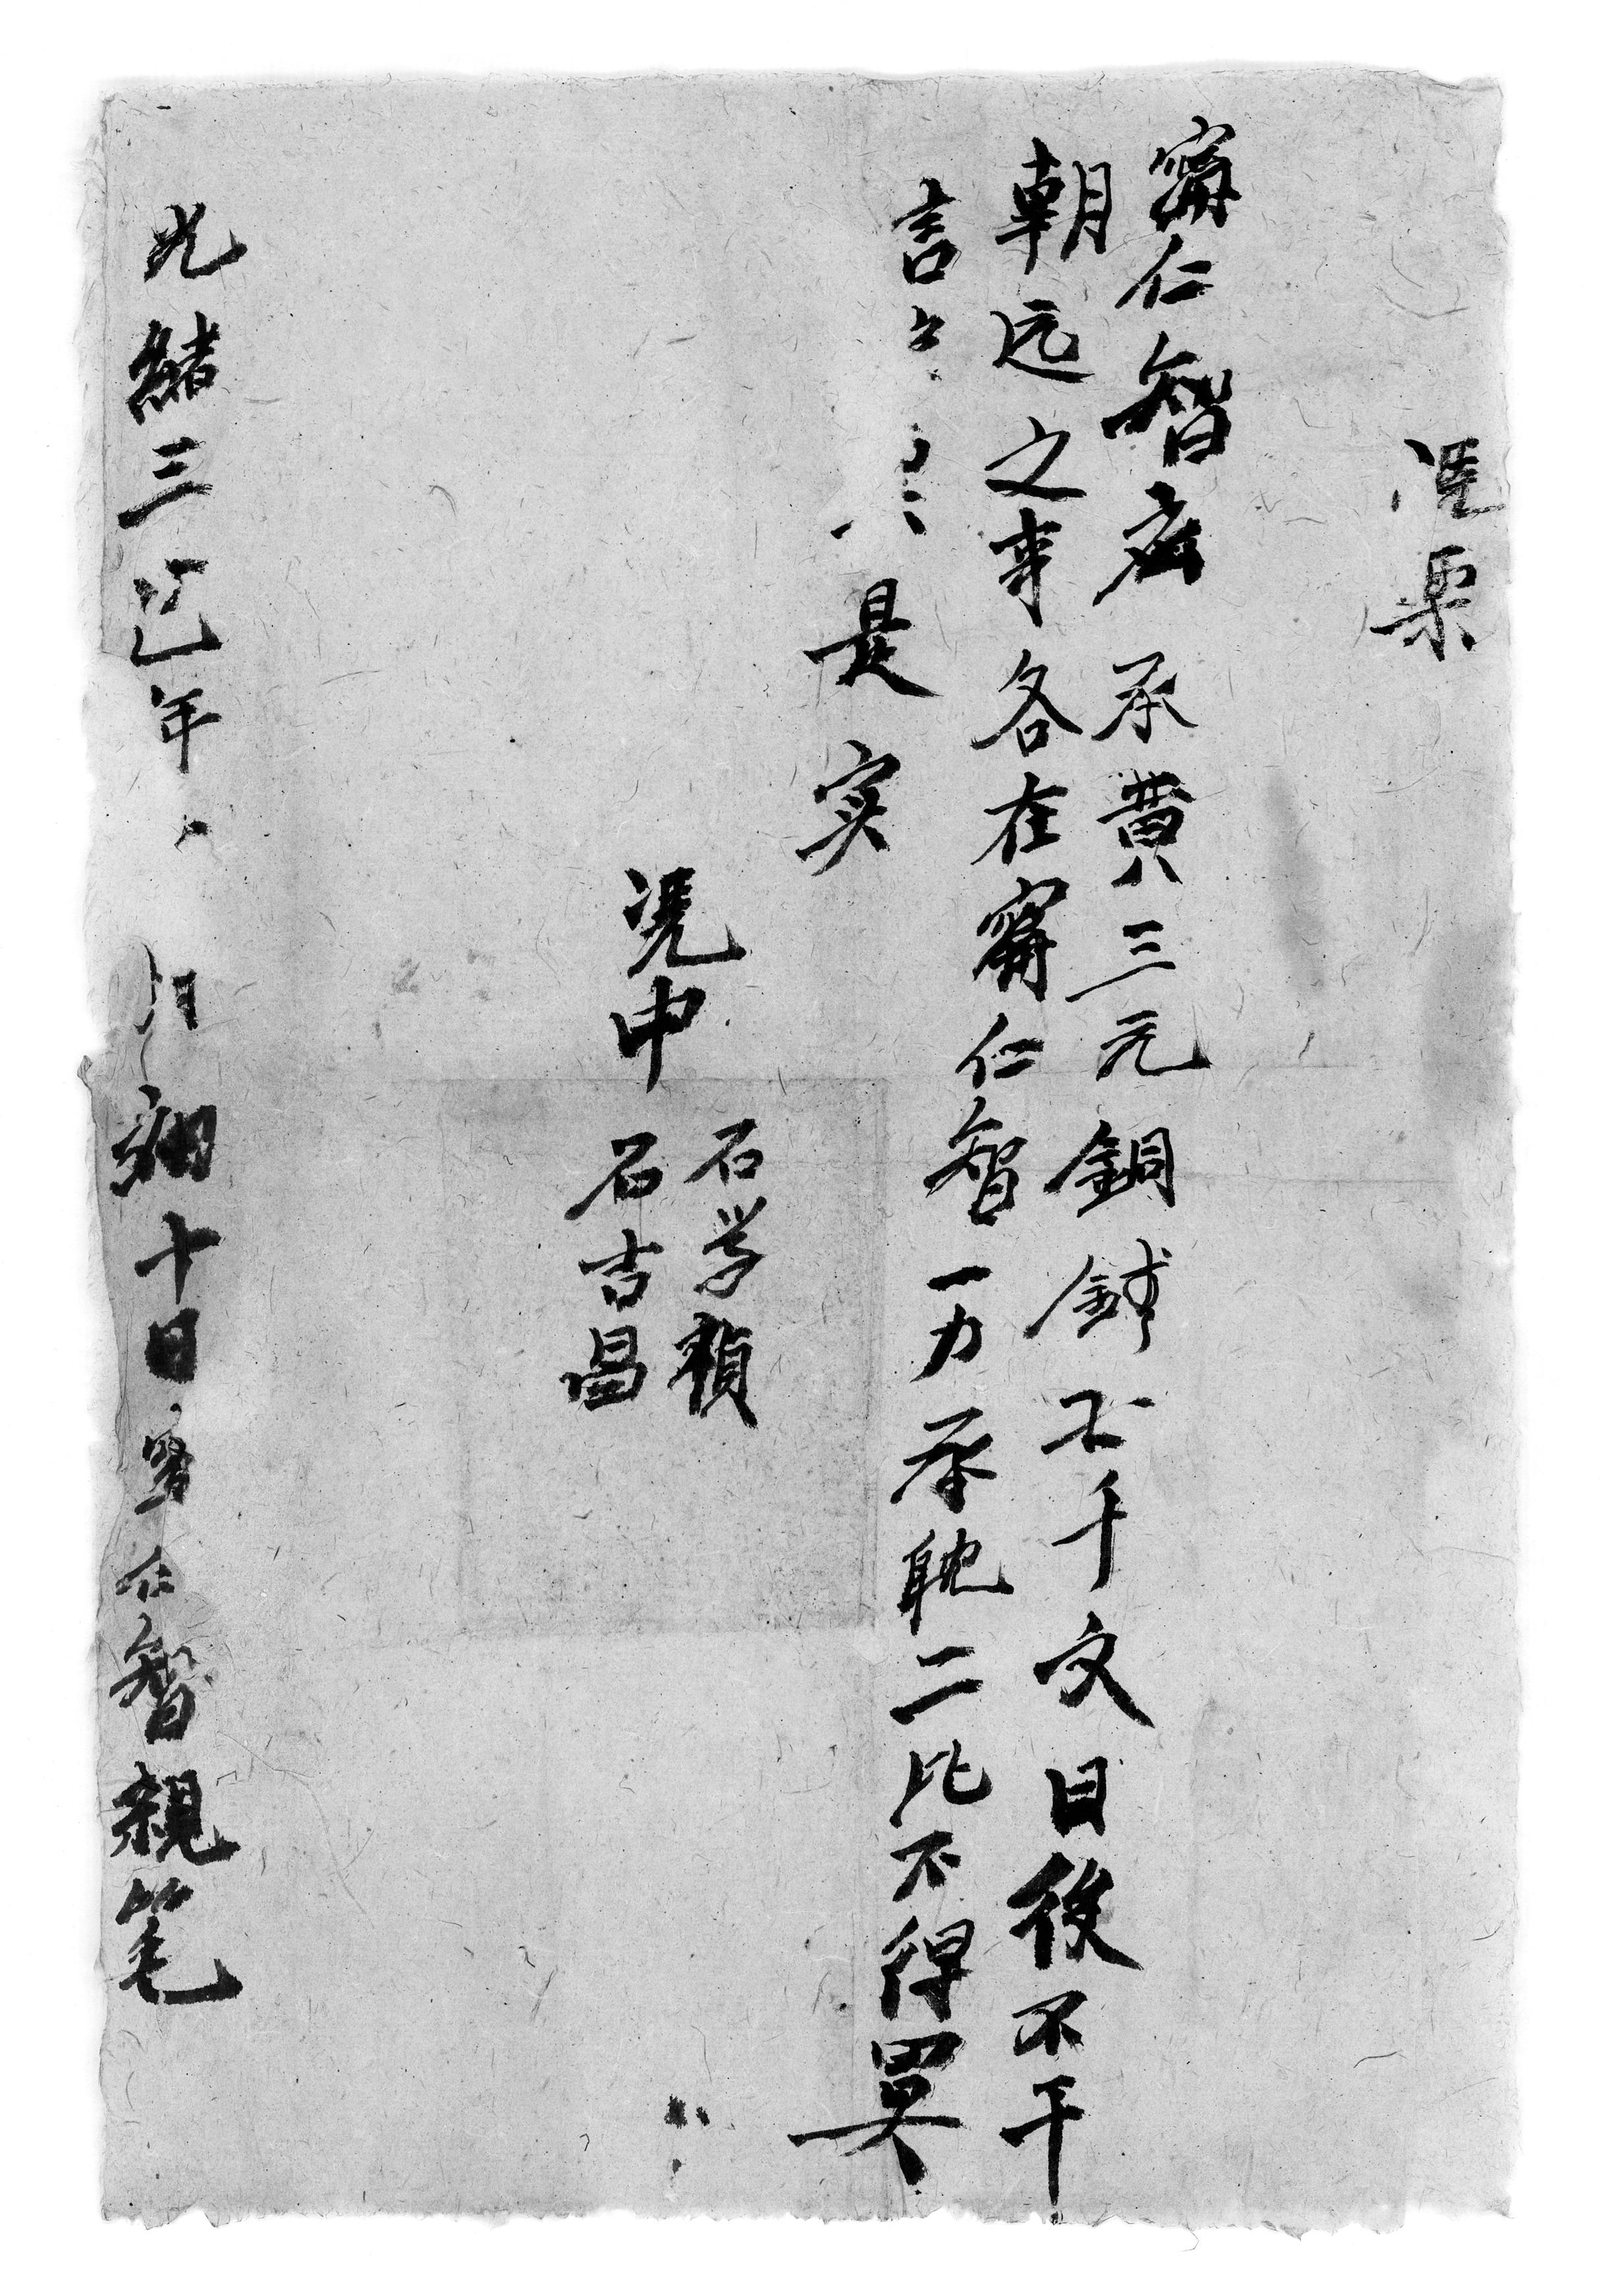 凴票
甯仁智 承黄三元銅錢 千文日後不干
朝远之事各在甯仁智一力承耽二比不得異
言 是实
凴中 石学禎
石吉昌
光緒三 年 月 十日甯仁智親笔